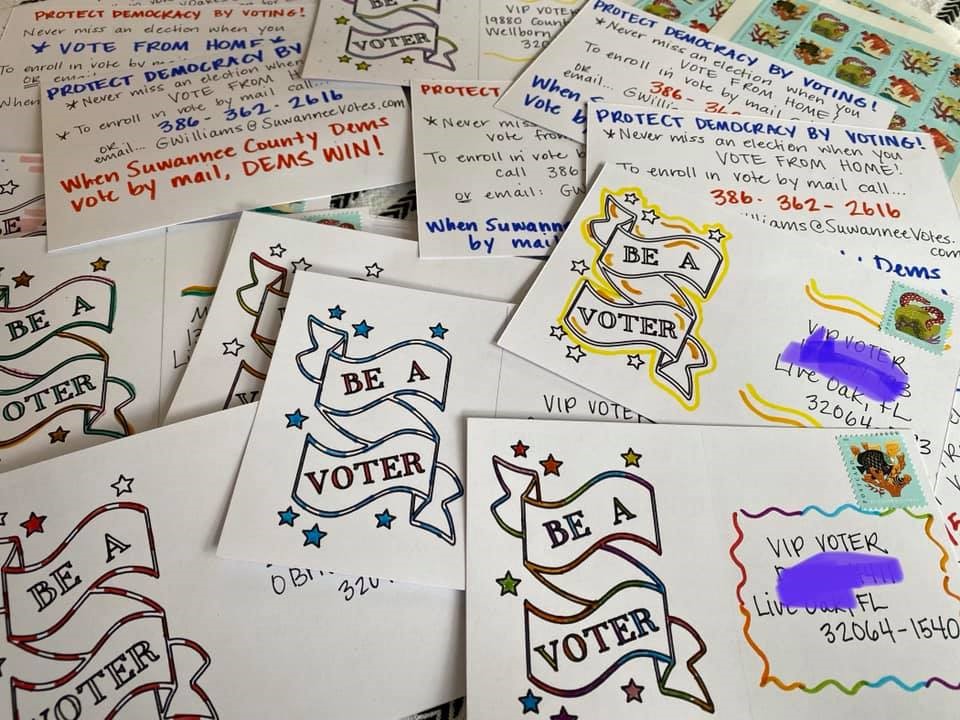 PROTECT DEMOCRACY BY VOTING!
Never miss an election when you
* VOTE FROM HOME *
To enroll in vote by
OR
When
PROTECT DEMOCRACY BY
* Never miss an election when
VOTE FROM H
* To enroll in vote by mail call...
386-362-2616
OR
email... GWilliams@SuwanneeVotes.com
When Suwannee County Dems
vote by mail, DEMS WIN!
BE A
VOTER
VIP VOTER
19880 Count
Wellborn,
320
PROTECT
* Never mis
vote from
To enroll in vote b
call 386
or email: GW
When Suwanne
by mail
PROTECT DEMOCRACY BY VOTING!
* Never miss an election when you
VOTE FROM HOME!
To enroll in vote by mail call
OR
email... 386-36
GWilli
When S
vote b
PROTECT DEMOCRACY BY VOTING!
* Never miss an election when you
VOTE FROM HOME!
To enroll in vote by mail call...
386-362-2616
illiams@SuwanneeVotes.
com
Dems
BE A
VOTER
VIP VOTER
Live Oak, FL
32064-
BE A
OTER
BE A
VOTER
VIP VOTER
O'Br
320
BE A
VOTER
BE A
VOTER
VIP VOTER
Live Oak, FL
32064-1540